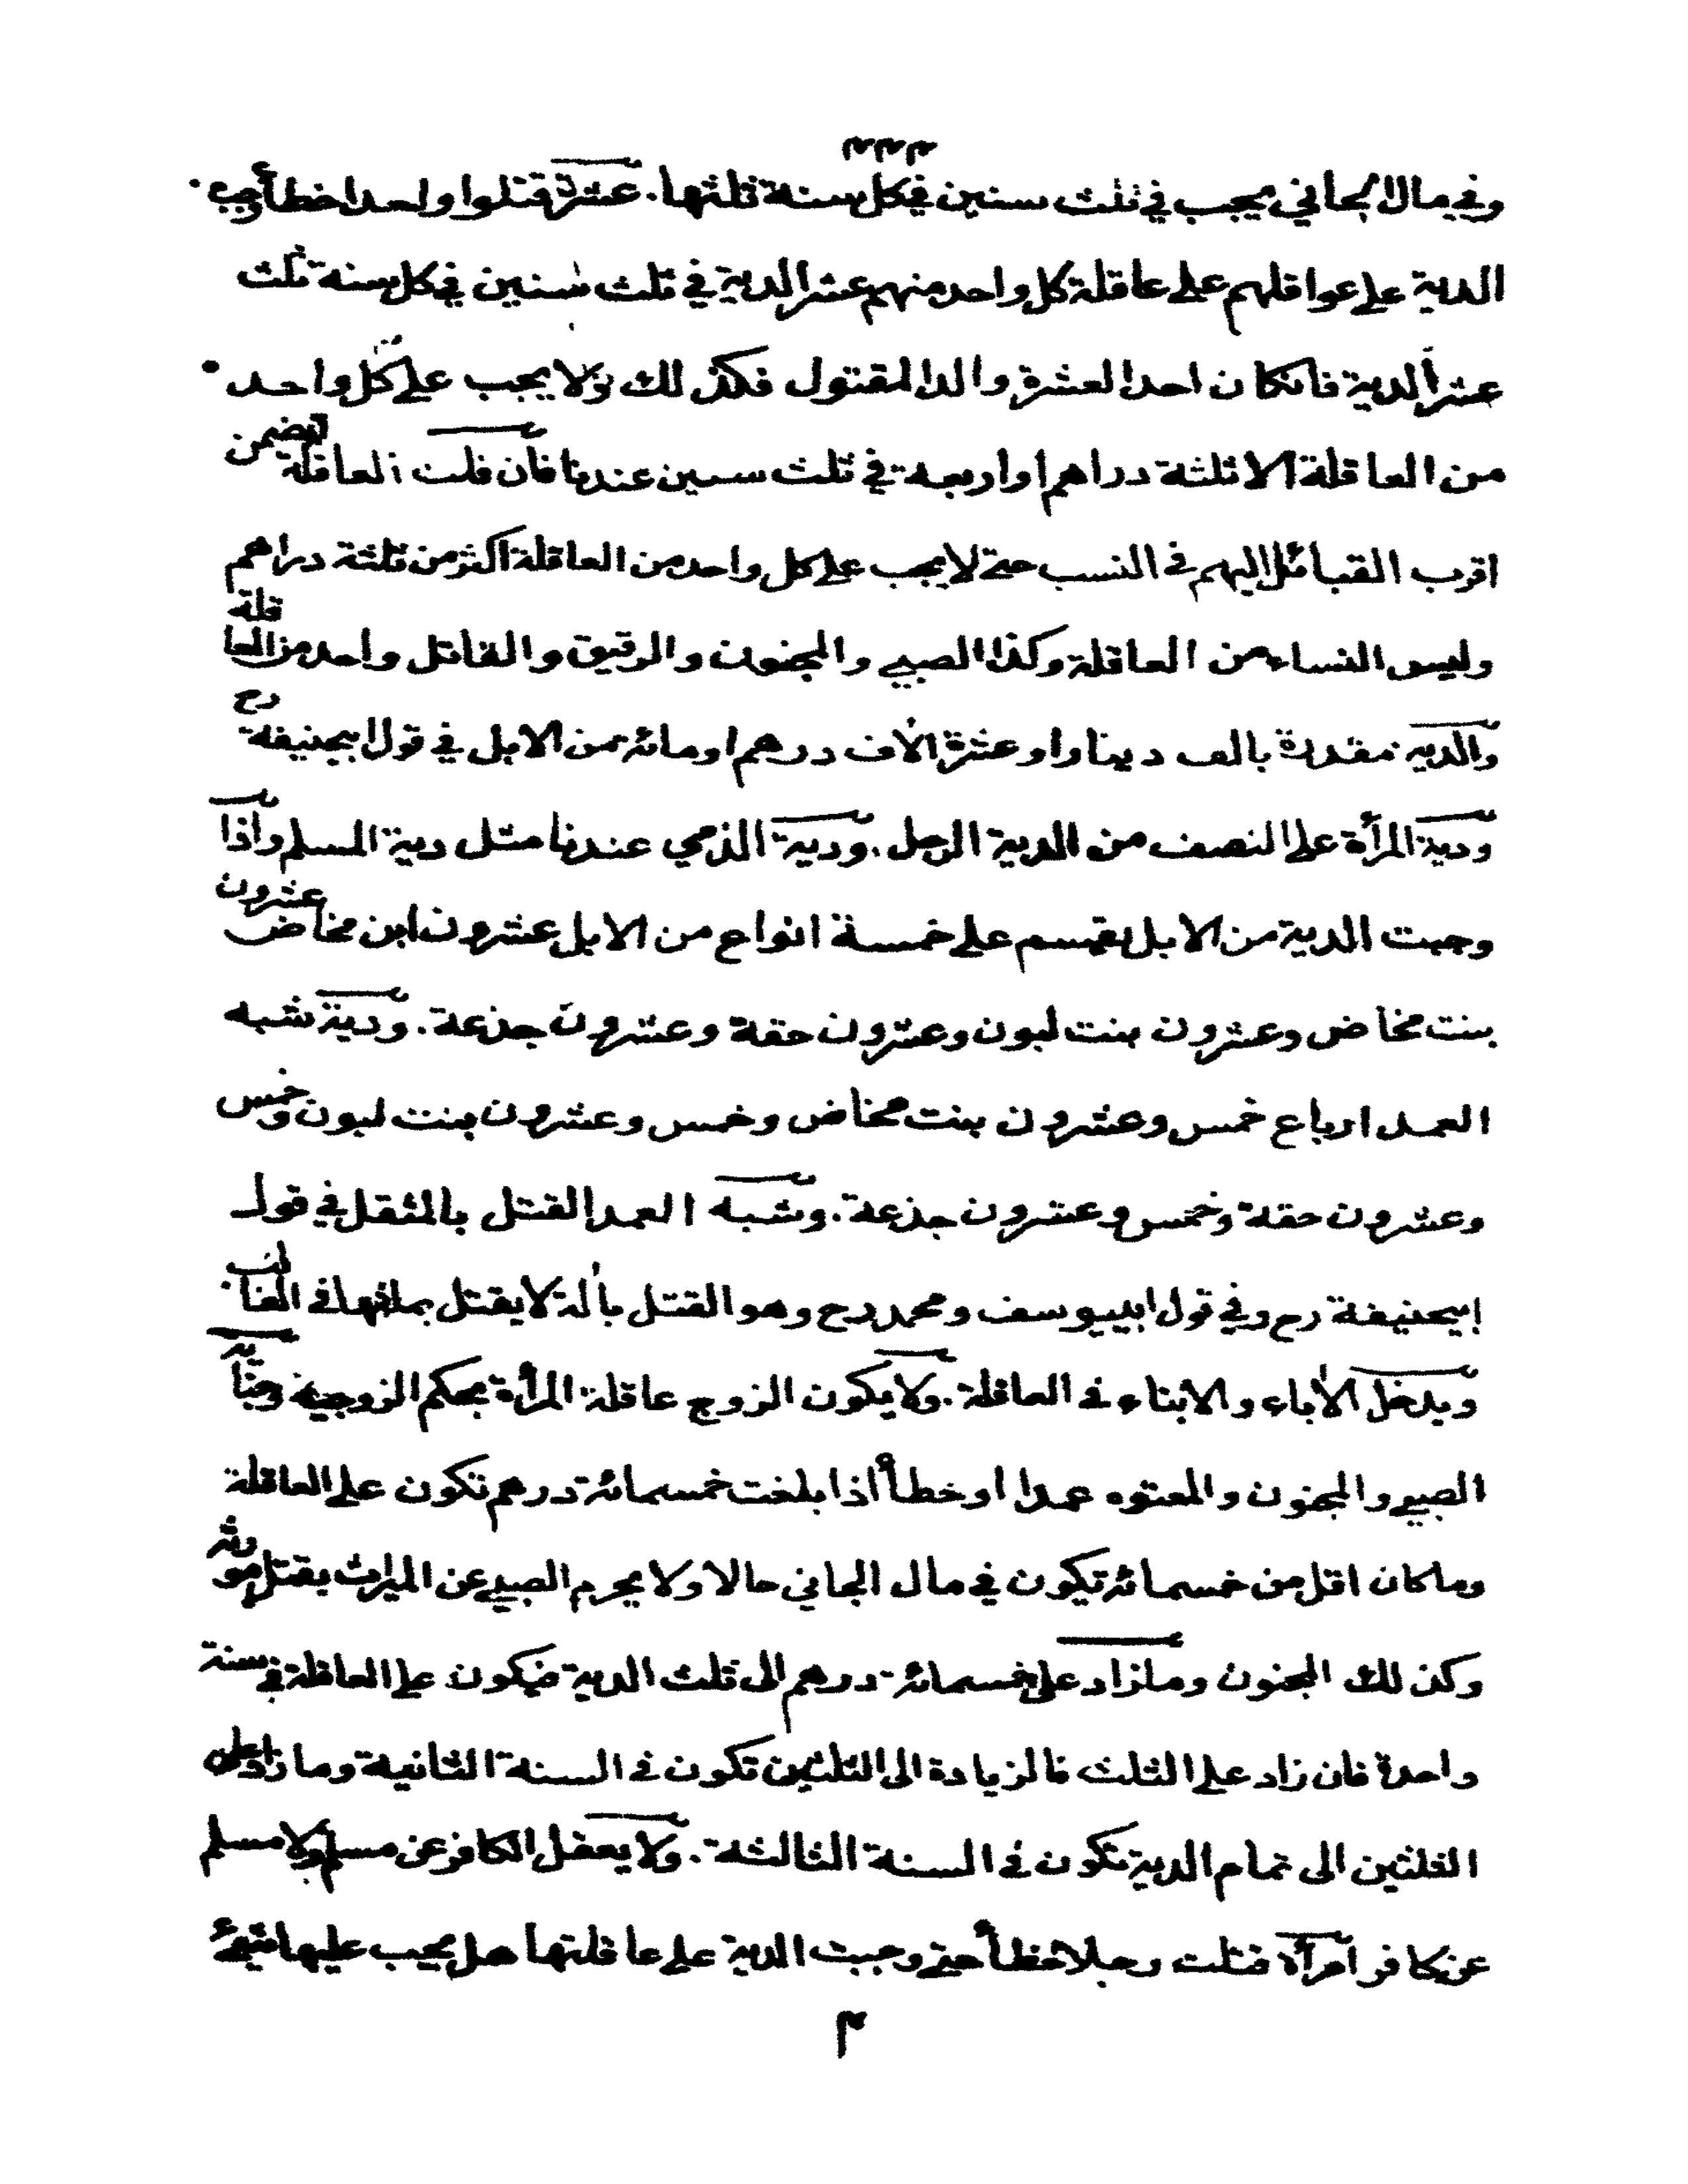 ٣٣٣
وفي مال الجاني يجب في ثلث سنين في كل سنة ثلثها. عشرة قتلوا واحدا خطأ وجب
الدية على عواقلهم على عاقلة كل واحد منهم عشر الدية في ثلث سنين في كل سنة ثلث
عشر الدية فانكان احد العشرة والد المقتول فكذلك ولا يجب على كل واحد
من العاقلة الا ثلثة دراهم او اربعة في ثلث سنين عندنا فان قلت العاقلة تضمن
اقرب القبائل اليهم في النسب حتى لا يجب على كل واحد من العاقلة اكثر من ثلثة دراهم
وليس النساء من العاقلة وكذا الصبي والمجنون والرقيق والقاتل واحد من العاقلة
والدية مقدرة بالف دينار او عشرة الاف درهم او مائة من الابل في قول ابيحنيفة رح
ودية المرأة على النصف من الدية الرجل. ودية الذمي عندنا مثل دية المسلم واذا
وجبت الدية من الابل يقسم على خمسة انواع من الابل عشرون ابن مخاض عشرون
بنت مخاض وعشرون بنت لبون وعشرون حقة وعشرون جذعة. ودية شبه
العمد ارباع خمس وعشرون بنت مخاض وخمس وعشرون بنت لبون وخمس
وعشرون حقة وخمس وعشرون جذعة. وشبه العمد القتل بالمثقل في قول
ابيحنيفة رح وفي قول ابييوسف ومحمد رح وهو القتل بألة لا يقتل بمثلها في الغالب
ويدخل الأباء والابناء في العاقلة. ولا يكون الزوج عاقلة المرأة بحكم الزوجية وجناية
الصبي والمجنون والمعتوه عمدا او خطأ اذا بلغت خمسمائة درهم تكون على العاقلة
وما كان اقل من خمسمائة تكون في مال الجاني حالا ولا يحرم الصبي عن الميراث بقتل مورثه
وكذلك المجنون وما زاد على خمسمائة درهم الى ثلث الدية فيكون على العاقلة في سنة
واحدة فان زاد على الثلث فالزيادة الى الثلثين تكون في السنة الثانية وما زاد على
الثلثين الى تمام الدية تكون في السنة الثالثة. ولا يعقل الكافر عن مسلم ولا مسلم
عن كافر امرأة قتلت رجلا خطأ حتى وجبت الدية على عاقلتها هل يجب عليها شيء
م